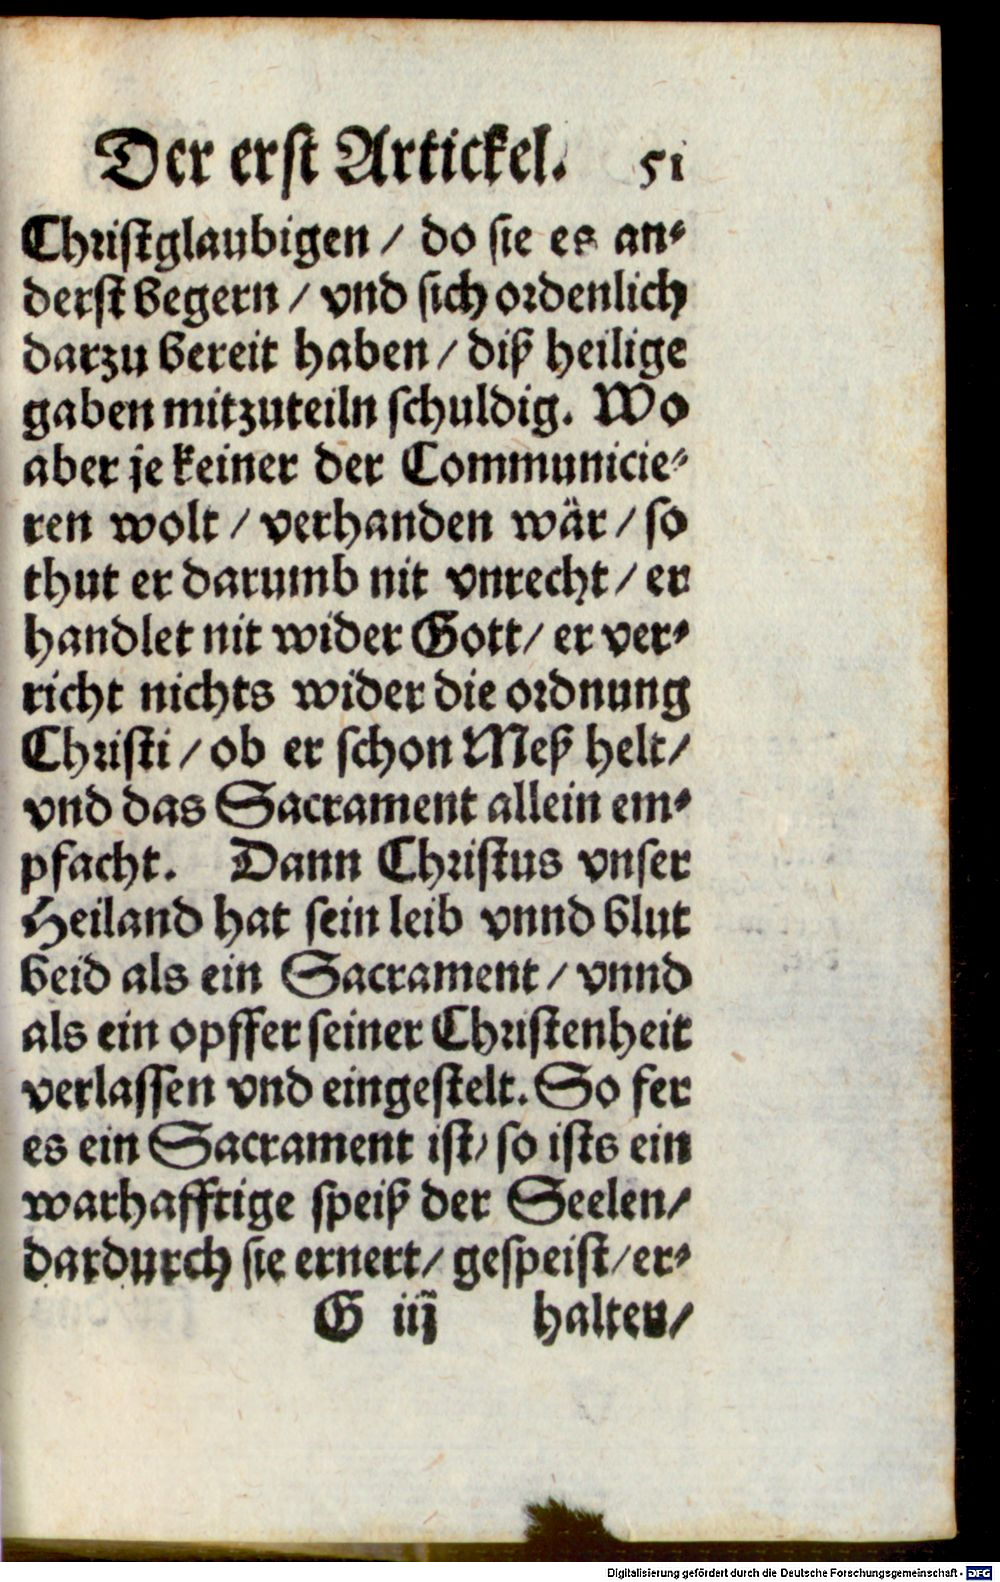 Der erst Artickel. 51
Christglaubigen / do sie es an-
derst begern / vnd sich ordenlich
darzu bereit haben / diß heilige
gaben mitzuteiln schuldig. Wo
aber je keiner der Communicie-
ren wolt / verhanden wär / so
thut er darumb nit vnrecht / er
handlet nit wider Gott / er ver-
richt nichts wider die ordnung
Christi / ob er schon Meß helt /
vnd das Sacrament allein em-
pfacht. Dann Christus vnser
Heiland hat sein leib vnnd blut
beid als ein Sacrament / vnnd
als ein opffer seiner Christenheit
verlassen vnd eingestelt. So fer
es ein Sacrament ist / so ists ein
warhafftige speiß der Seelen /
dardurch sie ernert / gespeist / er-
G iij halten /
Digitalisierung gefördert durch die Deutsche Forschungsgemeinschaft - DFG